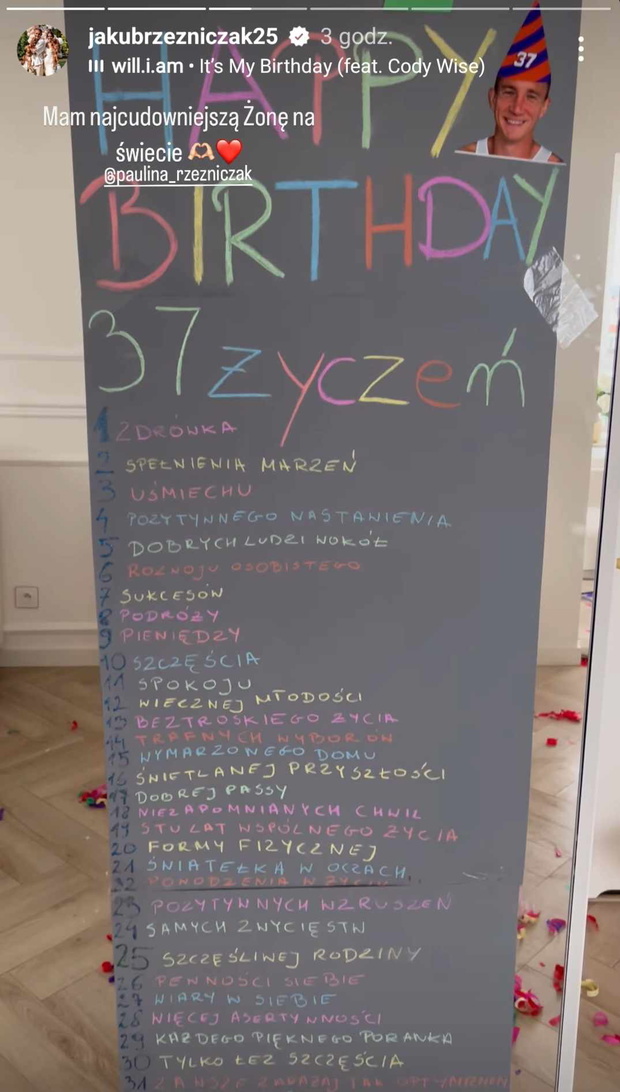 jakubrzezniczak25 3 godz.
will.i.am • It's My Birthday (feat. Cody Wise)
HAPPY
37
Mam najcudowniejszą Żonę na
świecie 🫶🏻❤️
@paulina_rzezniczak
BIRTHDAY
37 życzeń
1 ZDRÓWKA
2 SPEŁNIENIA MARZEŃ
3 UŚMIECHU
4 POZYTYWNEGO NASTAWIENIA
5 DOBRYCH LUDZI WOKÓŁ
6 ROZWOJU OSOBISTEGO
7 SUKCESÓW
8 PODRÓŻY
9 PIENIĘDZY
10 SZCZĘŚCIA
11 SPOKOJU
12 WIECZNEJ MŁODOŚCI
13 BEZTROSKIEGO ŻYCIA
14 TRAFNYCH WYBORÓW
15 WYMARZONEGO DOMU
16 ŚWIETLANEJ PRZYSZŁOŚCI
17 DOBREJ PASSY
18 NIEZAPOMNIANYCH CHWIL
19 STU LAT WSPÓLNEGO ŻYCIA
20 FORMY FIZYCZNEJ
21 ŚWIATEŁKA W OCZACH
22 POWODZENIA W ŻYCIU
23 POZYTYWNYCH WZRUSZEŃ
24 SAMYCH ZWYCIĘSTW
25 SZCZĘŚLIWEJ RODZINY
26 PEWNOŚCI SIEBIE
27 WIARY W SIEBIE
28 WIĘCEJ ASERTYWNOŚCI
29 KAŻDEGO PIĘKNEGO PORANKA
30 TYLKO ŁEZ SZCZĘŚCIA
31 ZAWSZE ZARAŻAJ TAK